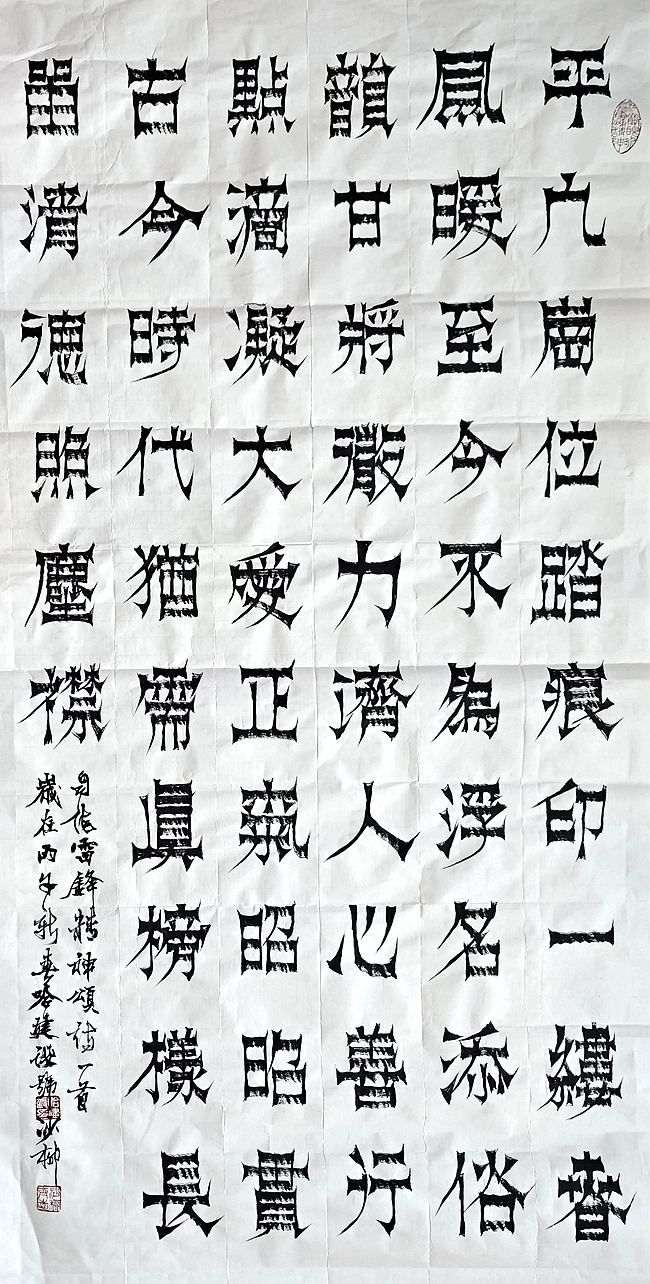 平凡崗位踏痕印一縷春
風暖至今不為浮名添俗
韻甘將微力濟人心善行
點滴凝大愛正氣昭昭貫
古今時代猶需眞榜樣長
留清德照塵襟
自作雷鋒精神頌詩一首
歲在丙午新春哈建設號沙柳